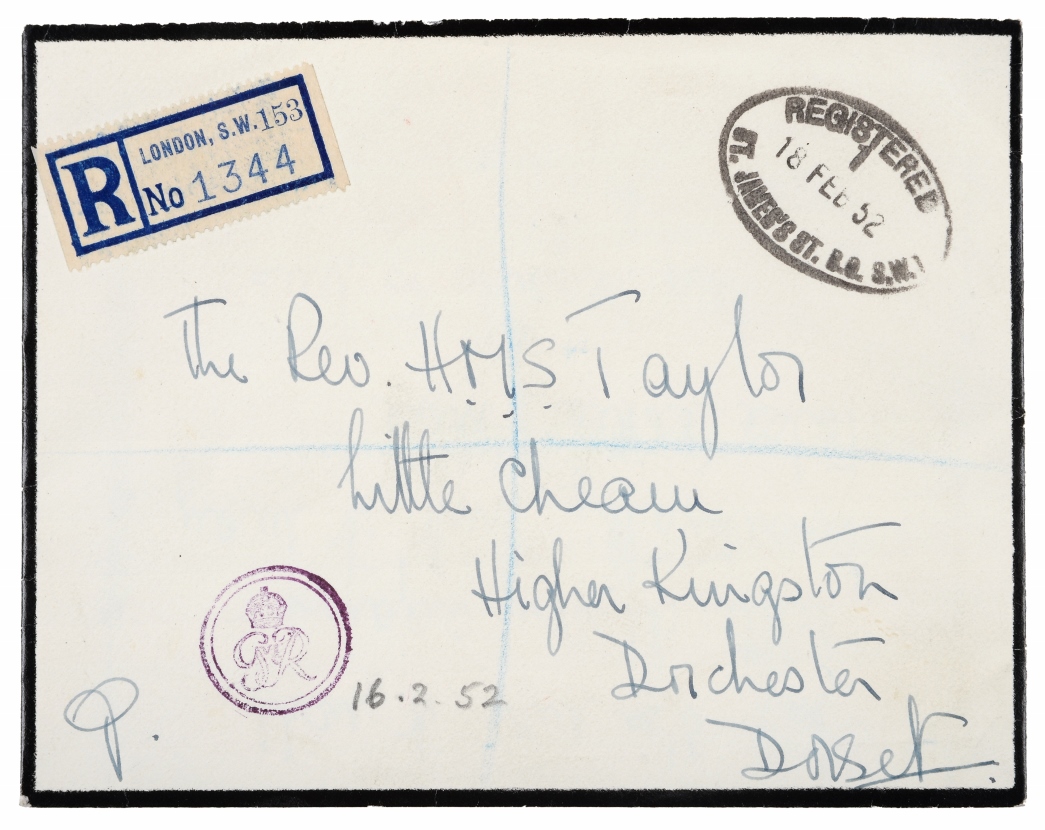 LONDON, S.W. 153
R No 1344
REGISTERED
1
18 FEB 52
ST. JAMES'S ST. B.O. S.W.1
The Rev. H.M.S. Taylor
Little Cheam
Higher Kingston
Dorchester
Dorset.
GRI
16.2.52
P.